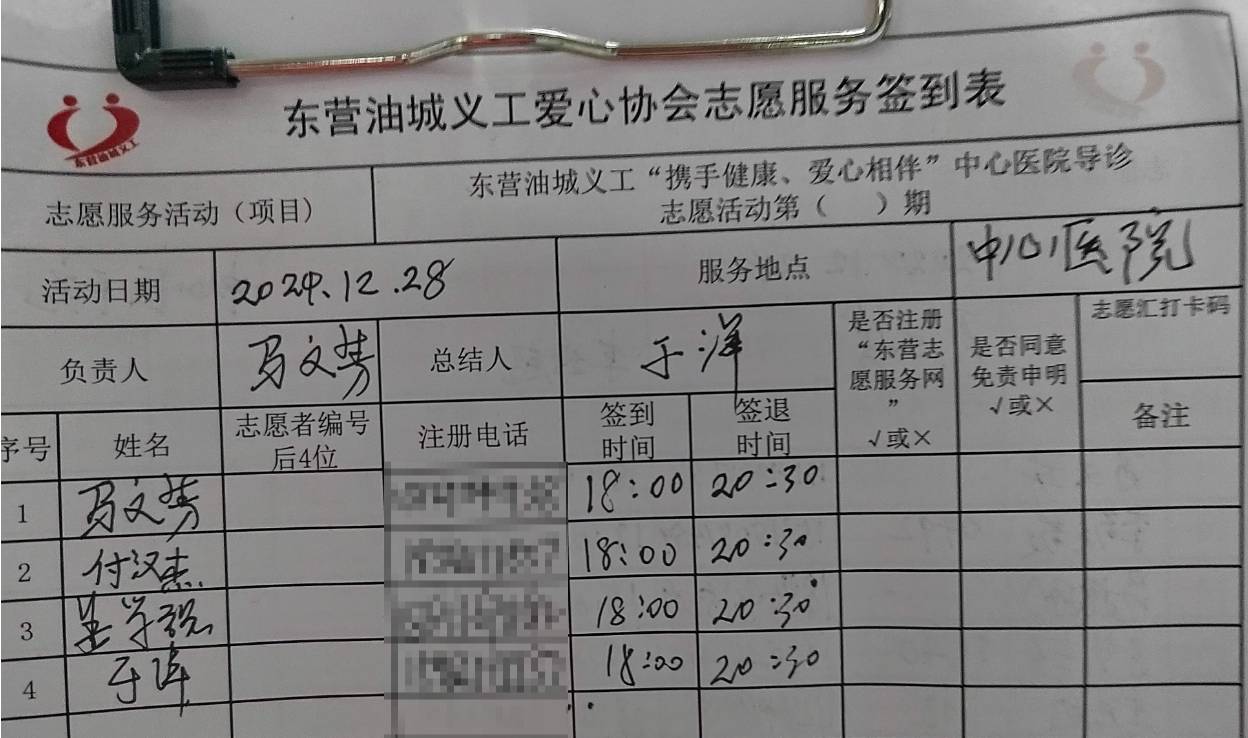 东营油城义工
东营油城义工爱心协会志愿服务签到表
志愿服务活动（项目）
东营油城义工“携手健康、爱心相伴”中心医院导诊
志愿活动第（　）期
活动日期
2024.12.28
服务地点
中心医院
负责人
马文芳
总结人
于洋
是否注册
“东营志
愿服务网
”
√或×
是否同意
免责申明
√或×
志愿汇打卡码
备注
序号
姓名
志愿者编号
后4位
注册电话
签到
时间
签退
时间
1 马文芳 18:00 20:30
2 付汉杰 18:00 20:30
3 18:00 20:30
4 于洋 18:00 20:30